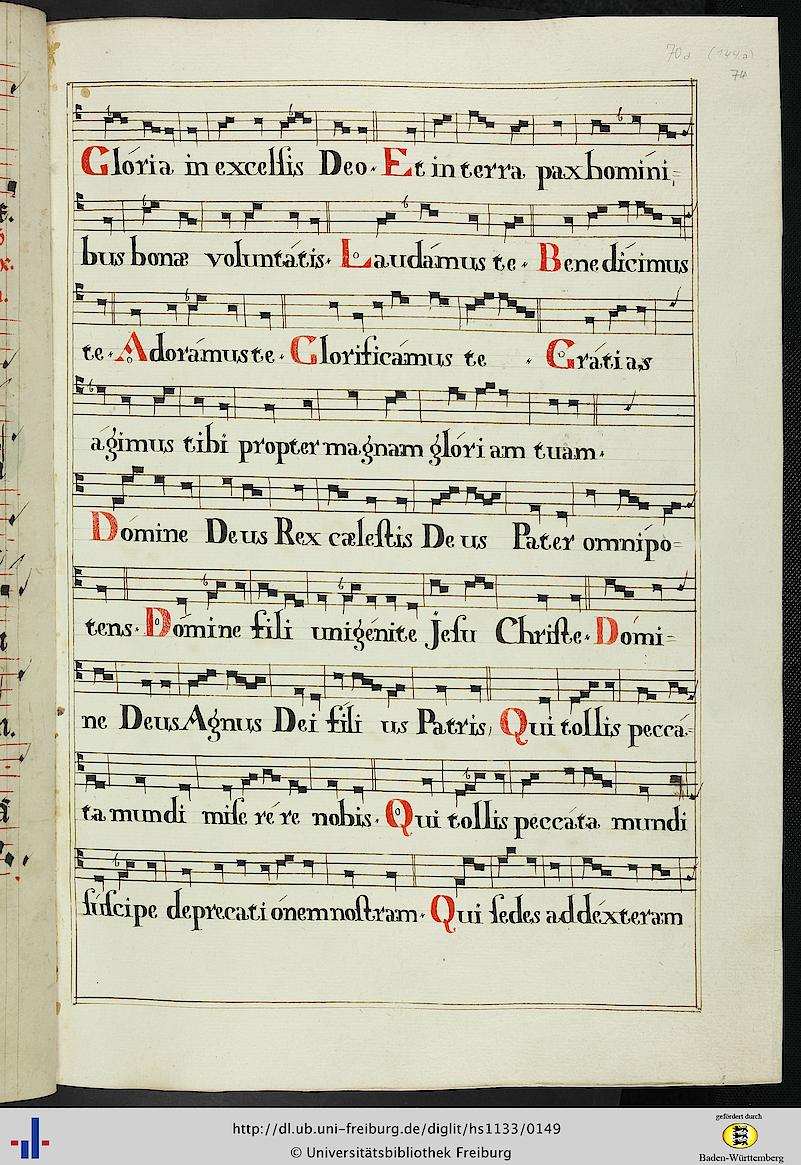 70a (144a)
74
Glória in excelſis Deo. Et in terra pax homíni=
bus bonæ voluntátis. Laudámus te. Benedícimus
te. Adorámus te. Glorificámus te. Grátias
ágimus tibi propter magnam glóriam tuam.
Dómine Deus Rex cæleſtis Deus Pater omnípo=
tens. Dómine fili unigénite Jeſu Chriſte. Domi=
ne Deus Agnus Dei fíli us Patris, Qui tollis peccá=
ta mundi miſe ré re nobis. Qui tollis peccáta mundi
ſúſcipe deprecati ónem noſtram. Qui ſedes ad déxteram
http://dl.ub.uni-freiburg.de/diglit/hs1133/0149
© Universitätsbibliothek Freiburg
gefördert durch
Baden-Württemberg